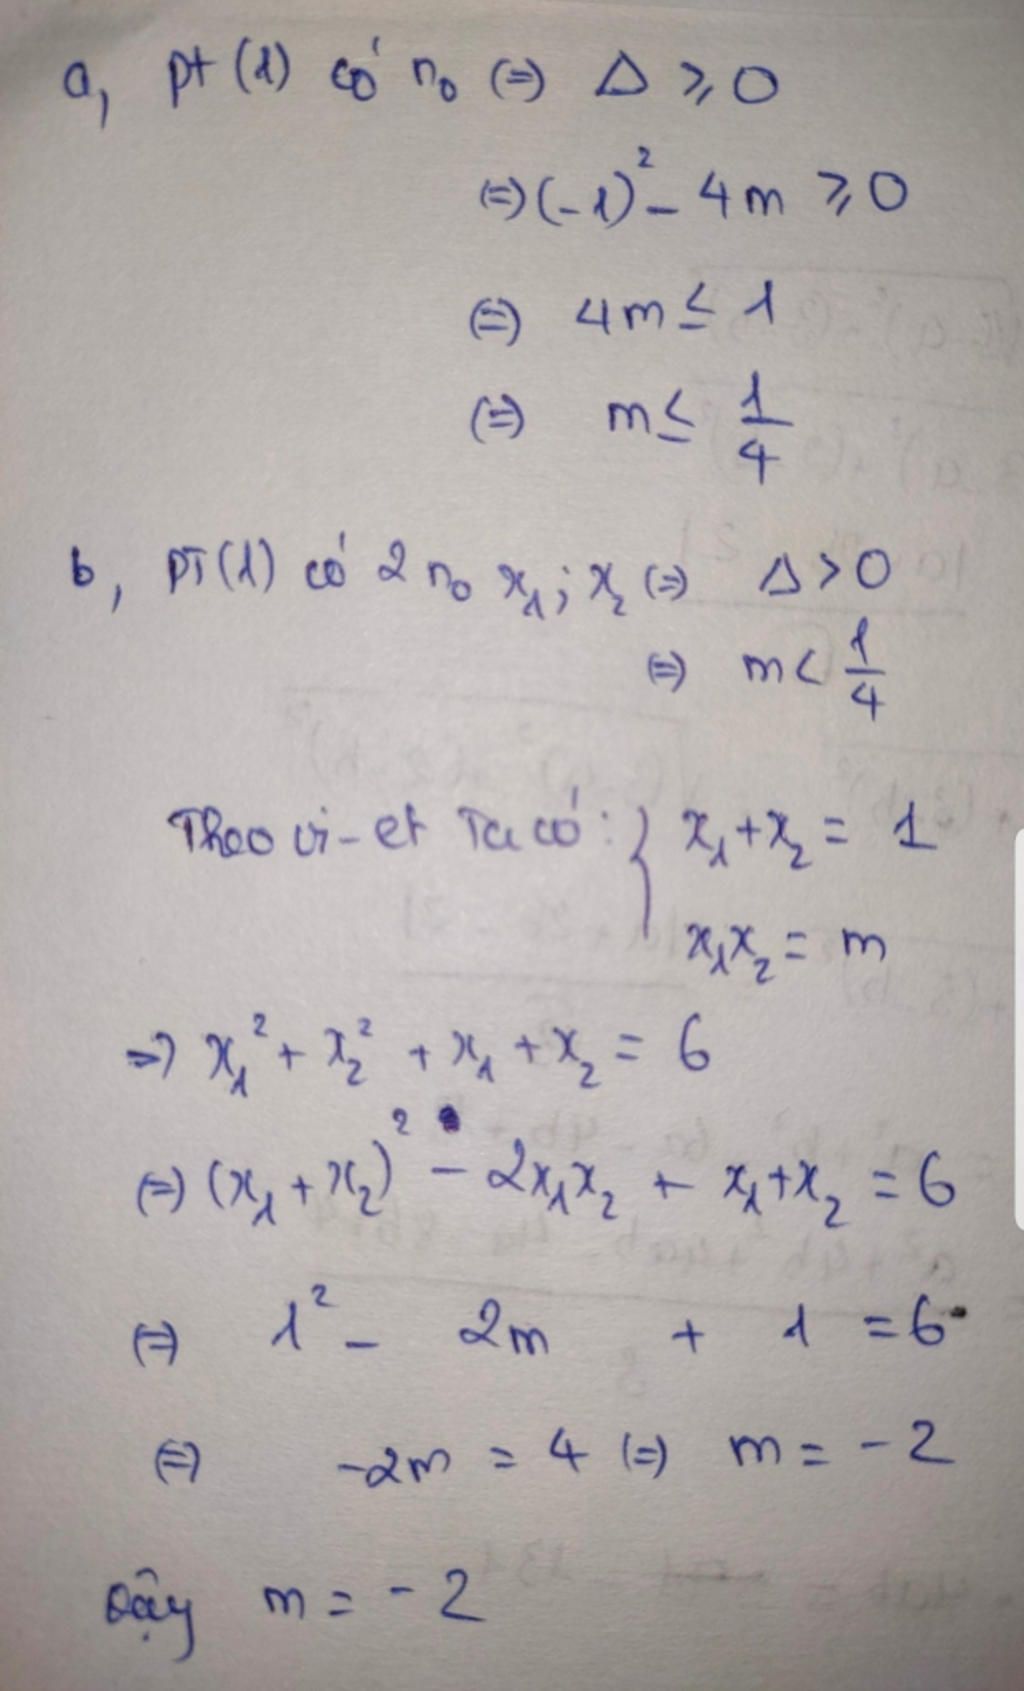 a, pt (1) có n₀ (=) Δ ⩾ 0
(=) (-1)² - 4m ⩾ 0
(=) 4m ≤ 1
(=) m ≤ 1/4
b, PT (1) có 2 n₀ x₁ ; x₂ (=) Δ > 0
(=) m < 1/4
Theo vi-et Ta có : { x₁ + x₂ = 1
x₁x₂ = m
=> x₁² + x₂² + x₁ + x₂ = 6
(=) (x₁ + x₂)² - 2x₁x₂ + x₁ + x₂ = 6
(=) 1² - 2m + 1 = 6
(=) -2m = 4 (=) m = -2
Vậy m = -2